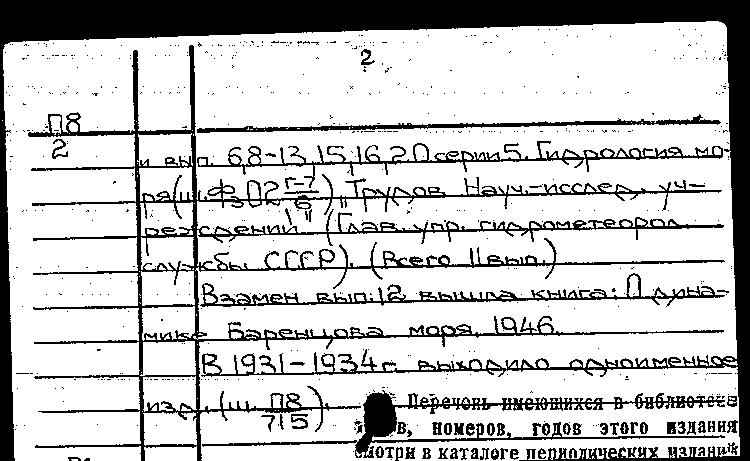 2
П8
2
и вып. 6,8-13,15,16,20 серии 5. Гидрология мо-
ря (ш. Ф₃П2 Г-7/6), "Трудов Науч.-исслед. уч-
реждений" (Глав. упр. гидрометеорол.
службы СССР). (Всего 11 вып.)
Взамен вып. 12 вышла книга: О дина-
мике Баренцова моря, 1946.
В 1931-1934 г. выходило одноименное
изд. (ш. П8/715).
Перечень имеющихся в библиотеке
номеров, годов этого издания
смотри в каталоге периодических изданий